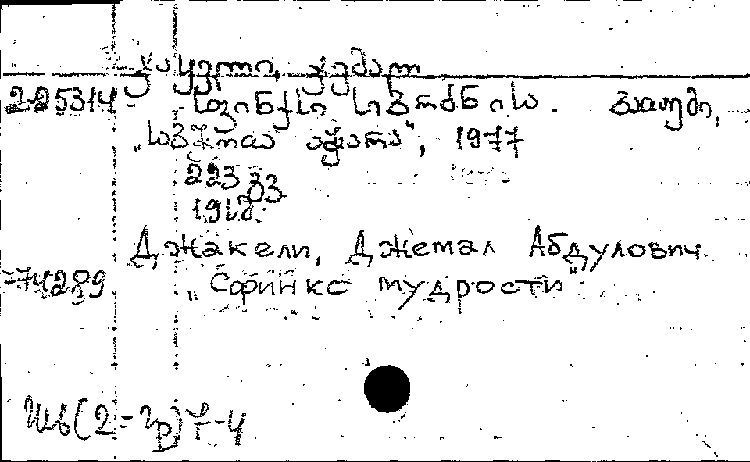 ჯაყელი, ჯემალ
2-25314 სფინქსი სიბრძნისა. ბათუმი,
„საბჭოთა აჭარა“, 1977
223 გვ.
Джакели, Джемал Абдулович
-74289 „Сфинкс мудрости“